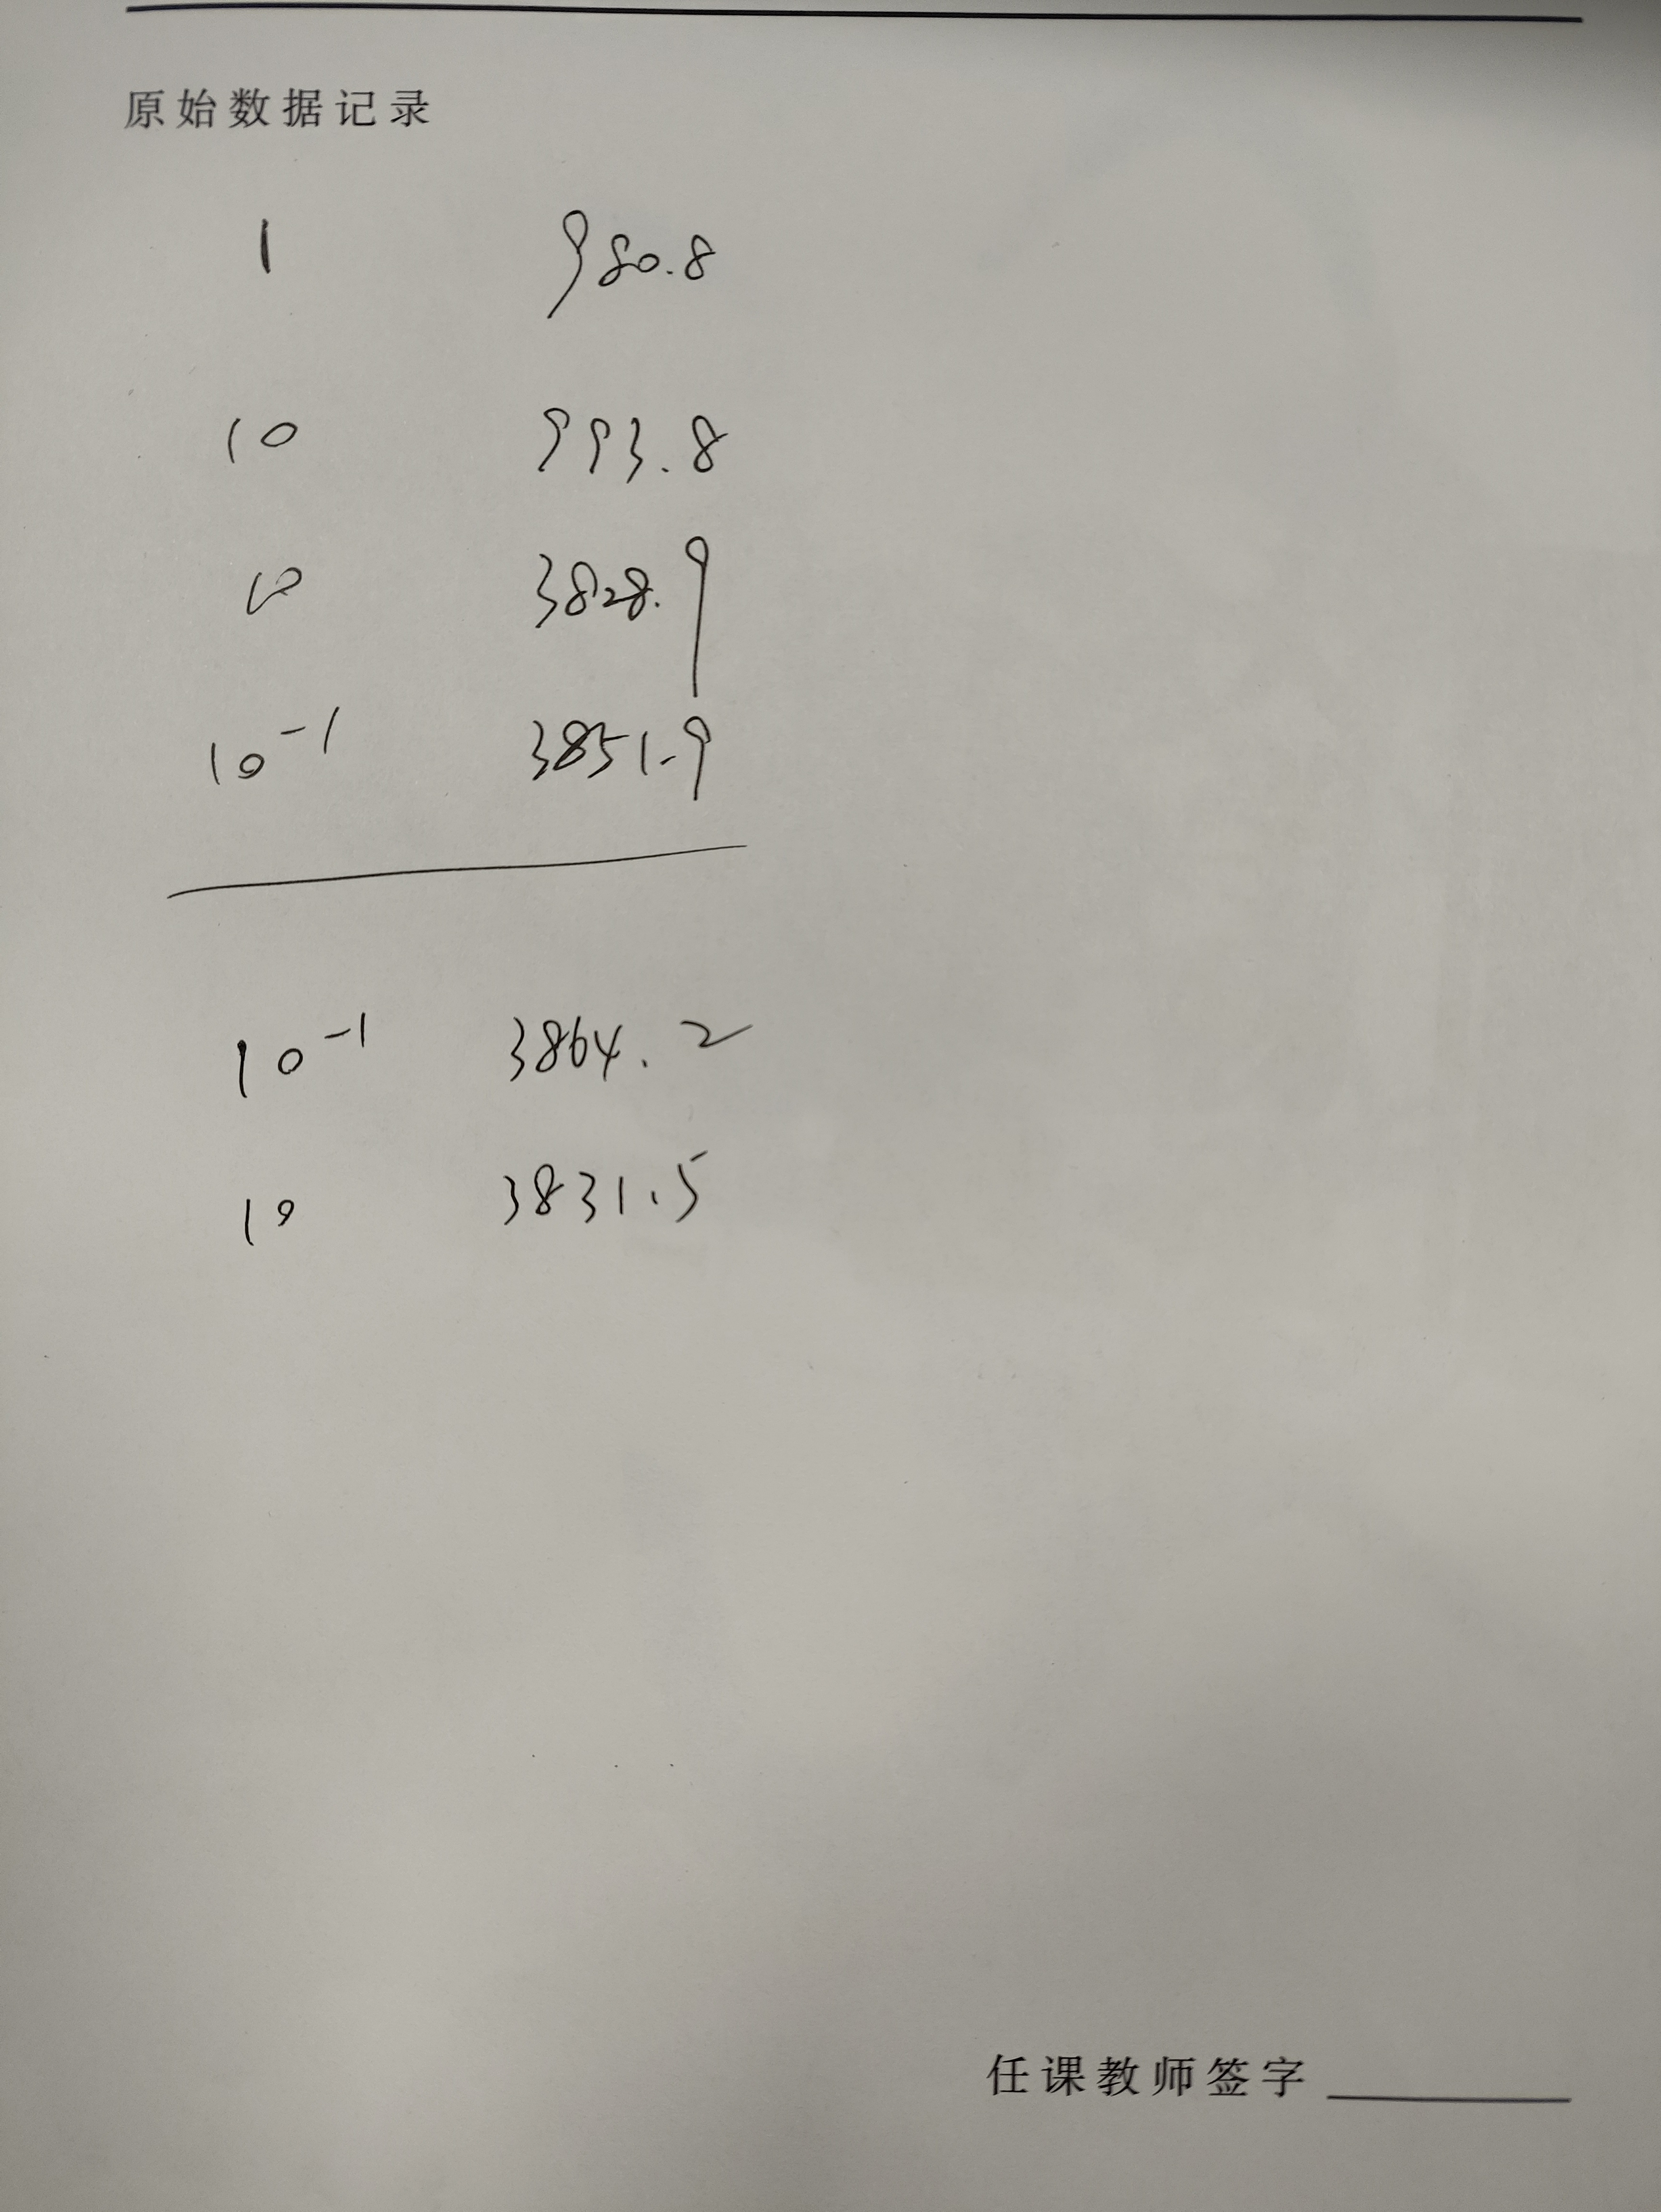 原始数据记录
1 980.8
10 993.8
10 3828.9
10⁻¹ 3851.9
10⁻¹ 3864.2
10 3831.5
任课教师签字